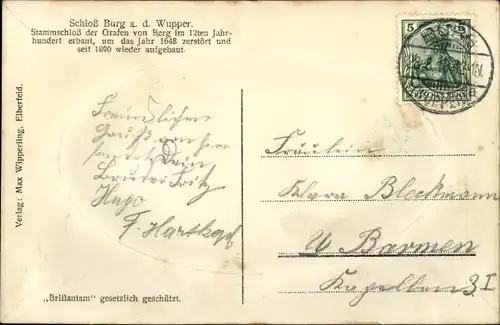 Schloß Burg a. d. Wupper.
Stammschloß der Grafen von Berg im 12ten Jahr-
hundert erbaut, um das Jahr 1648 zerstört und
seit 1890 wieder aufgebaut.
5
Freundlichen
Gruß von hier
sendet Dein
Bruder Fritz
Hugo
F. Hartkopf
Fräulein
Klara Bleckmann
U Barmen
Kapellen
I
Verlag: Max Wipperling, Elberfeld.
„Brillantam" gesetzlich geschützt.